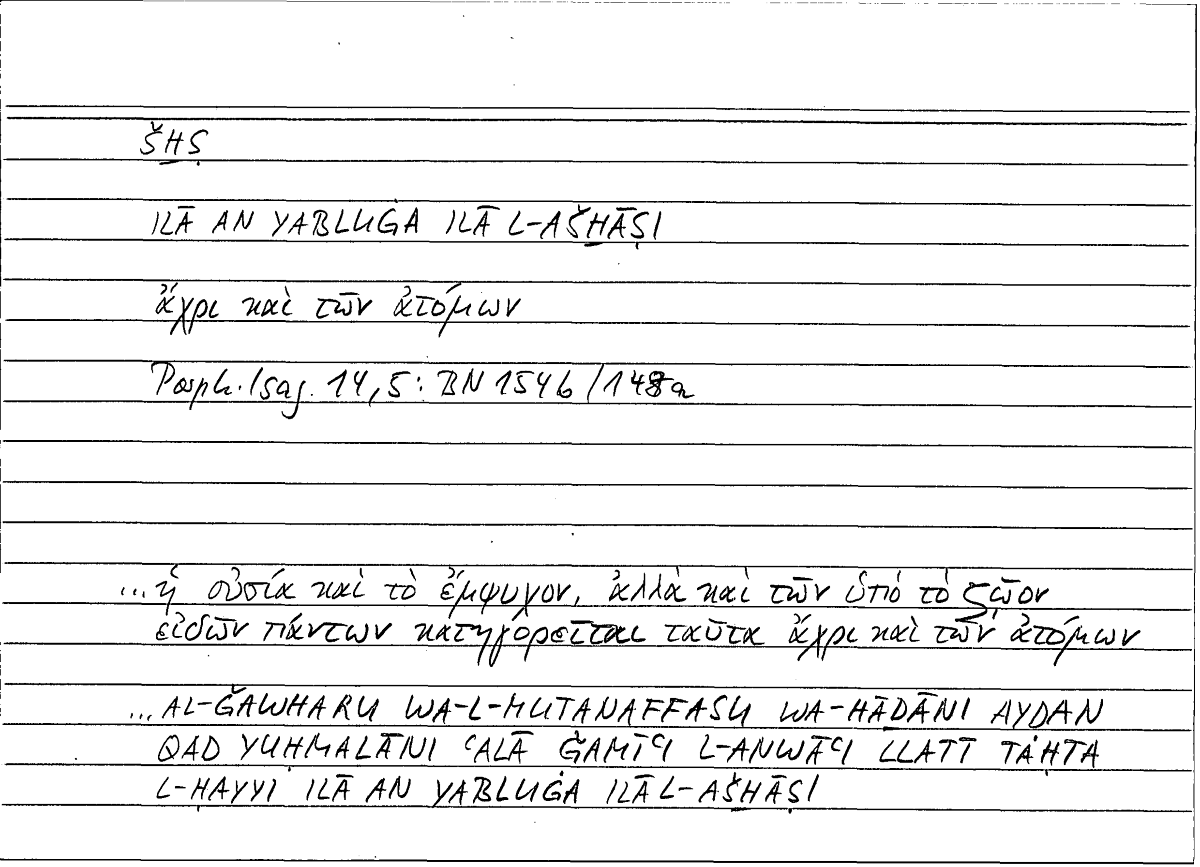 ŠH̱Ṣ
ILĀ AN YABLUĠA ILĀ L-AŠH̱ĀṢI
ἄχρι καὶ τῶν ἀτόμων
Porph. Isag. 14,5: BN 1546/148a
...ἡ οὐσία καὶ τὸ ἔμψυχον, ἀλλὰ καὶ τῶν ὑπὸ τὸ ζῷον
εἰδῶν πάντων κατηγορεῖται ταῦτα ἄχρι καὶ τῶν ἀτόμων
...AL-ǦAWHARU WA-L-MUTANAFFASU WA-HĀḎĀNI AYḌAN
QAD YUḤMALĀNI ʿALĀ ǦAMĪʿI L-ANWĀʿI LLATĪ TAḤTA
L-ḤAYYI ILĀ AN YABLUĠA ILĀ L-AŠH̱ĀṢI